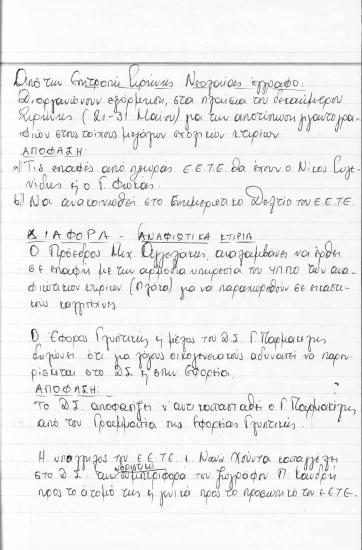 Από την Επιτροπή Ειρήνης Νεολαίας έγγραφο:
Διοργανώνουν εξόρμηση, στα πλαίσια του δεκαήμερου
Ειρήνης (21-31 Μαΐου) για την αποτύπωση γιγαντογρα-
φιών στους τοίχους μεγάλων σχολικών κτιρίων
ΑΠΟΦΑΣΗ:
α) Τις επαφές από πλευράς Ε.Ε.Τ.Ε. θα έχουν ο Νίκος
ή ο Γ. Φώκας.
b) Να ανακοινωθεί στο Ενημερωτικό Δελτίο του Ε.Ε.Τ.Ε.
ΔΙΑΦΟΡΑ - ΑΝΑΦΙΩΤΙΚΑ ΚΤΙΡΙΑ
Ο Πρόεδρος Μιχ. αναλαμβάνει να έρθει
σε επαφή με την αρμόδια υπηρεσία του ΥΠΠΟ των ανα-
φιώτικων κτιρίων (Πλάκα) για να παραχωρηθούν σε εικαστι-
κούς καλλιτέχνες.
Ο Έφορας Γλυπτικής ή μέλος του Δ.Σ. Γ. Παρμακέλης
δηλώνει ότι για λόγους οικογενειακούς αδυνατεί να παρευ-
ρίσκεται στο Δ.Σ. ή στην Εφορεία.
ΑΠΟΦΑΣΗ:
Το Δ.Σ. αποφασίζει ν' αντικατασταθεί ο Γ. Παρμακέλης
από τον Γραμματέα της Εφορείας Γλυπτικής.
Η υπάλληλος του Ε.Ε.Τ.Ε. κ. Νανά Χούντα καταγγέλει
στο Δ.Σ. την συμπεριφορά του ζωγράφου Π.
προς το άτομό της ή γενικά προς το προσωπικό του Ε.Ε.Τ.Ε.